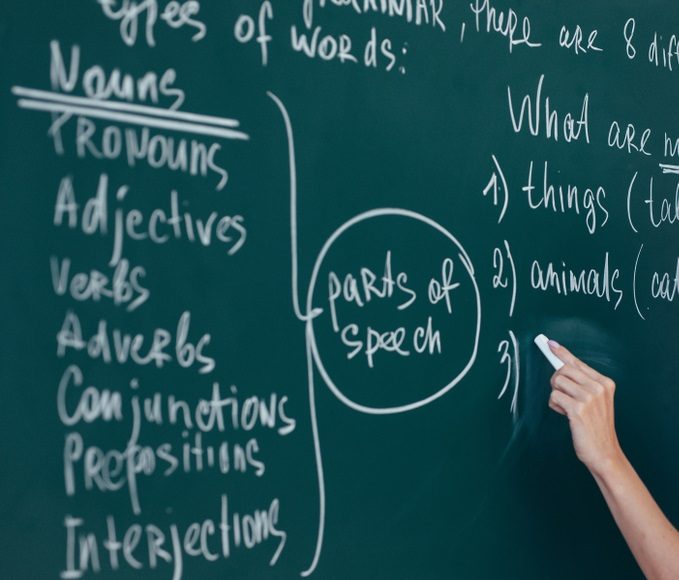 GRAMMAR, there are 8 diff
types of words:
Nouns
Pronouns
Adjectives
Verbs
Adverbs
Conjunctions
Prepositions
Interjections
parts of
speech
What are
1) things (
2) animals (
3)